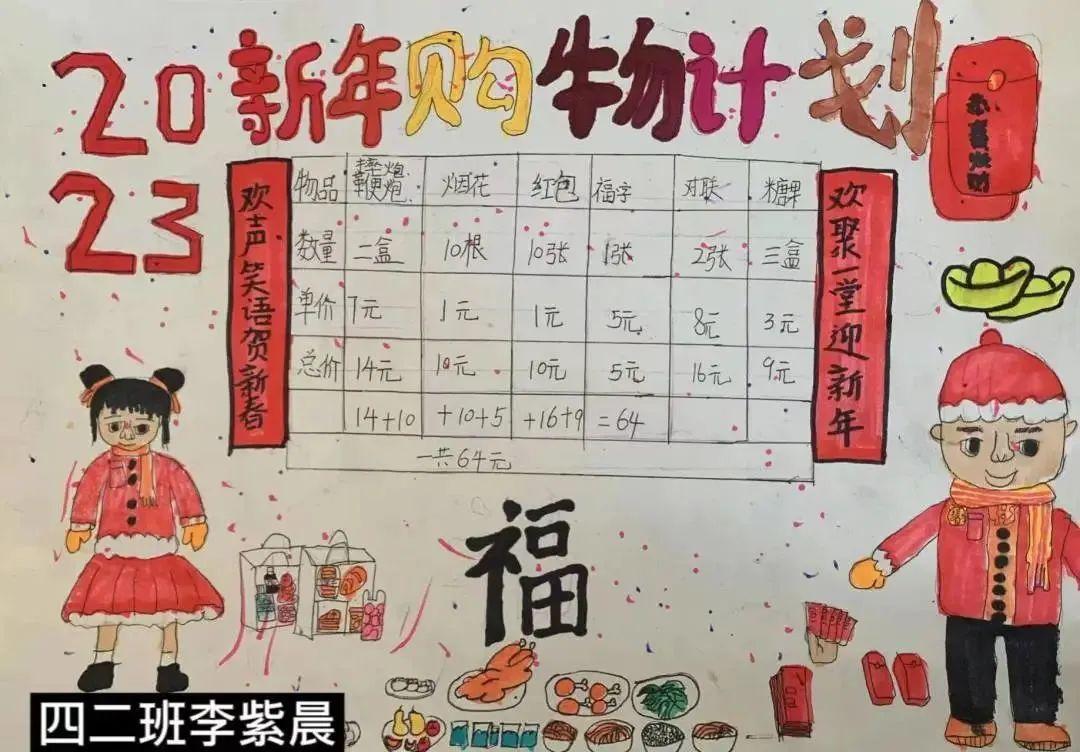 2023新年购物计划
恭喜发财
欢声笑语贺新春
物品 摔炮鞭炮 烟花 红包 福字 对联 糖果
数量 二盒 10根 10张 1张 2张 三盒
单价 7元 1元 1元 5元 8元 3元
总价 14元 10元 10元 5元 16元 9元
14+10 +10+5 +16+9 =64
一共64元
欢聚一堂迎新年
福
四二班李紫晨